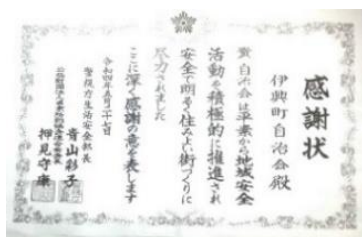 感謝状
伊興町自治会殿
貴自治会は平素から地域安全
活動を積極的に推進され
安全で明るく住みよい街づくりに
尽力されました
ここに深く感謝の意を表します
令和四年五月二十七日
警視庁生活安全部長
青山彩子
押見守康